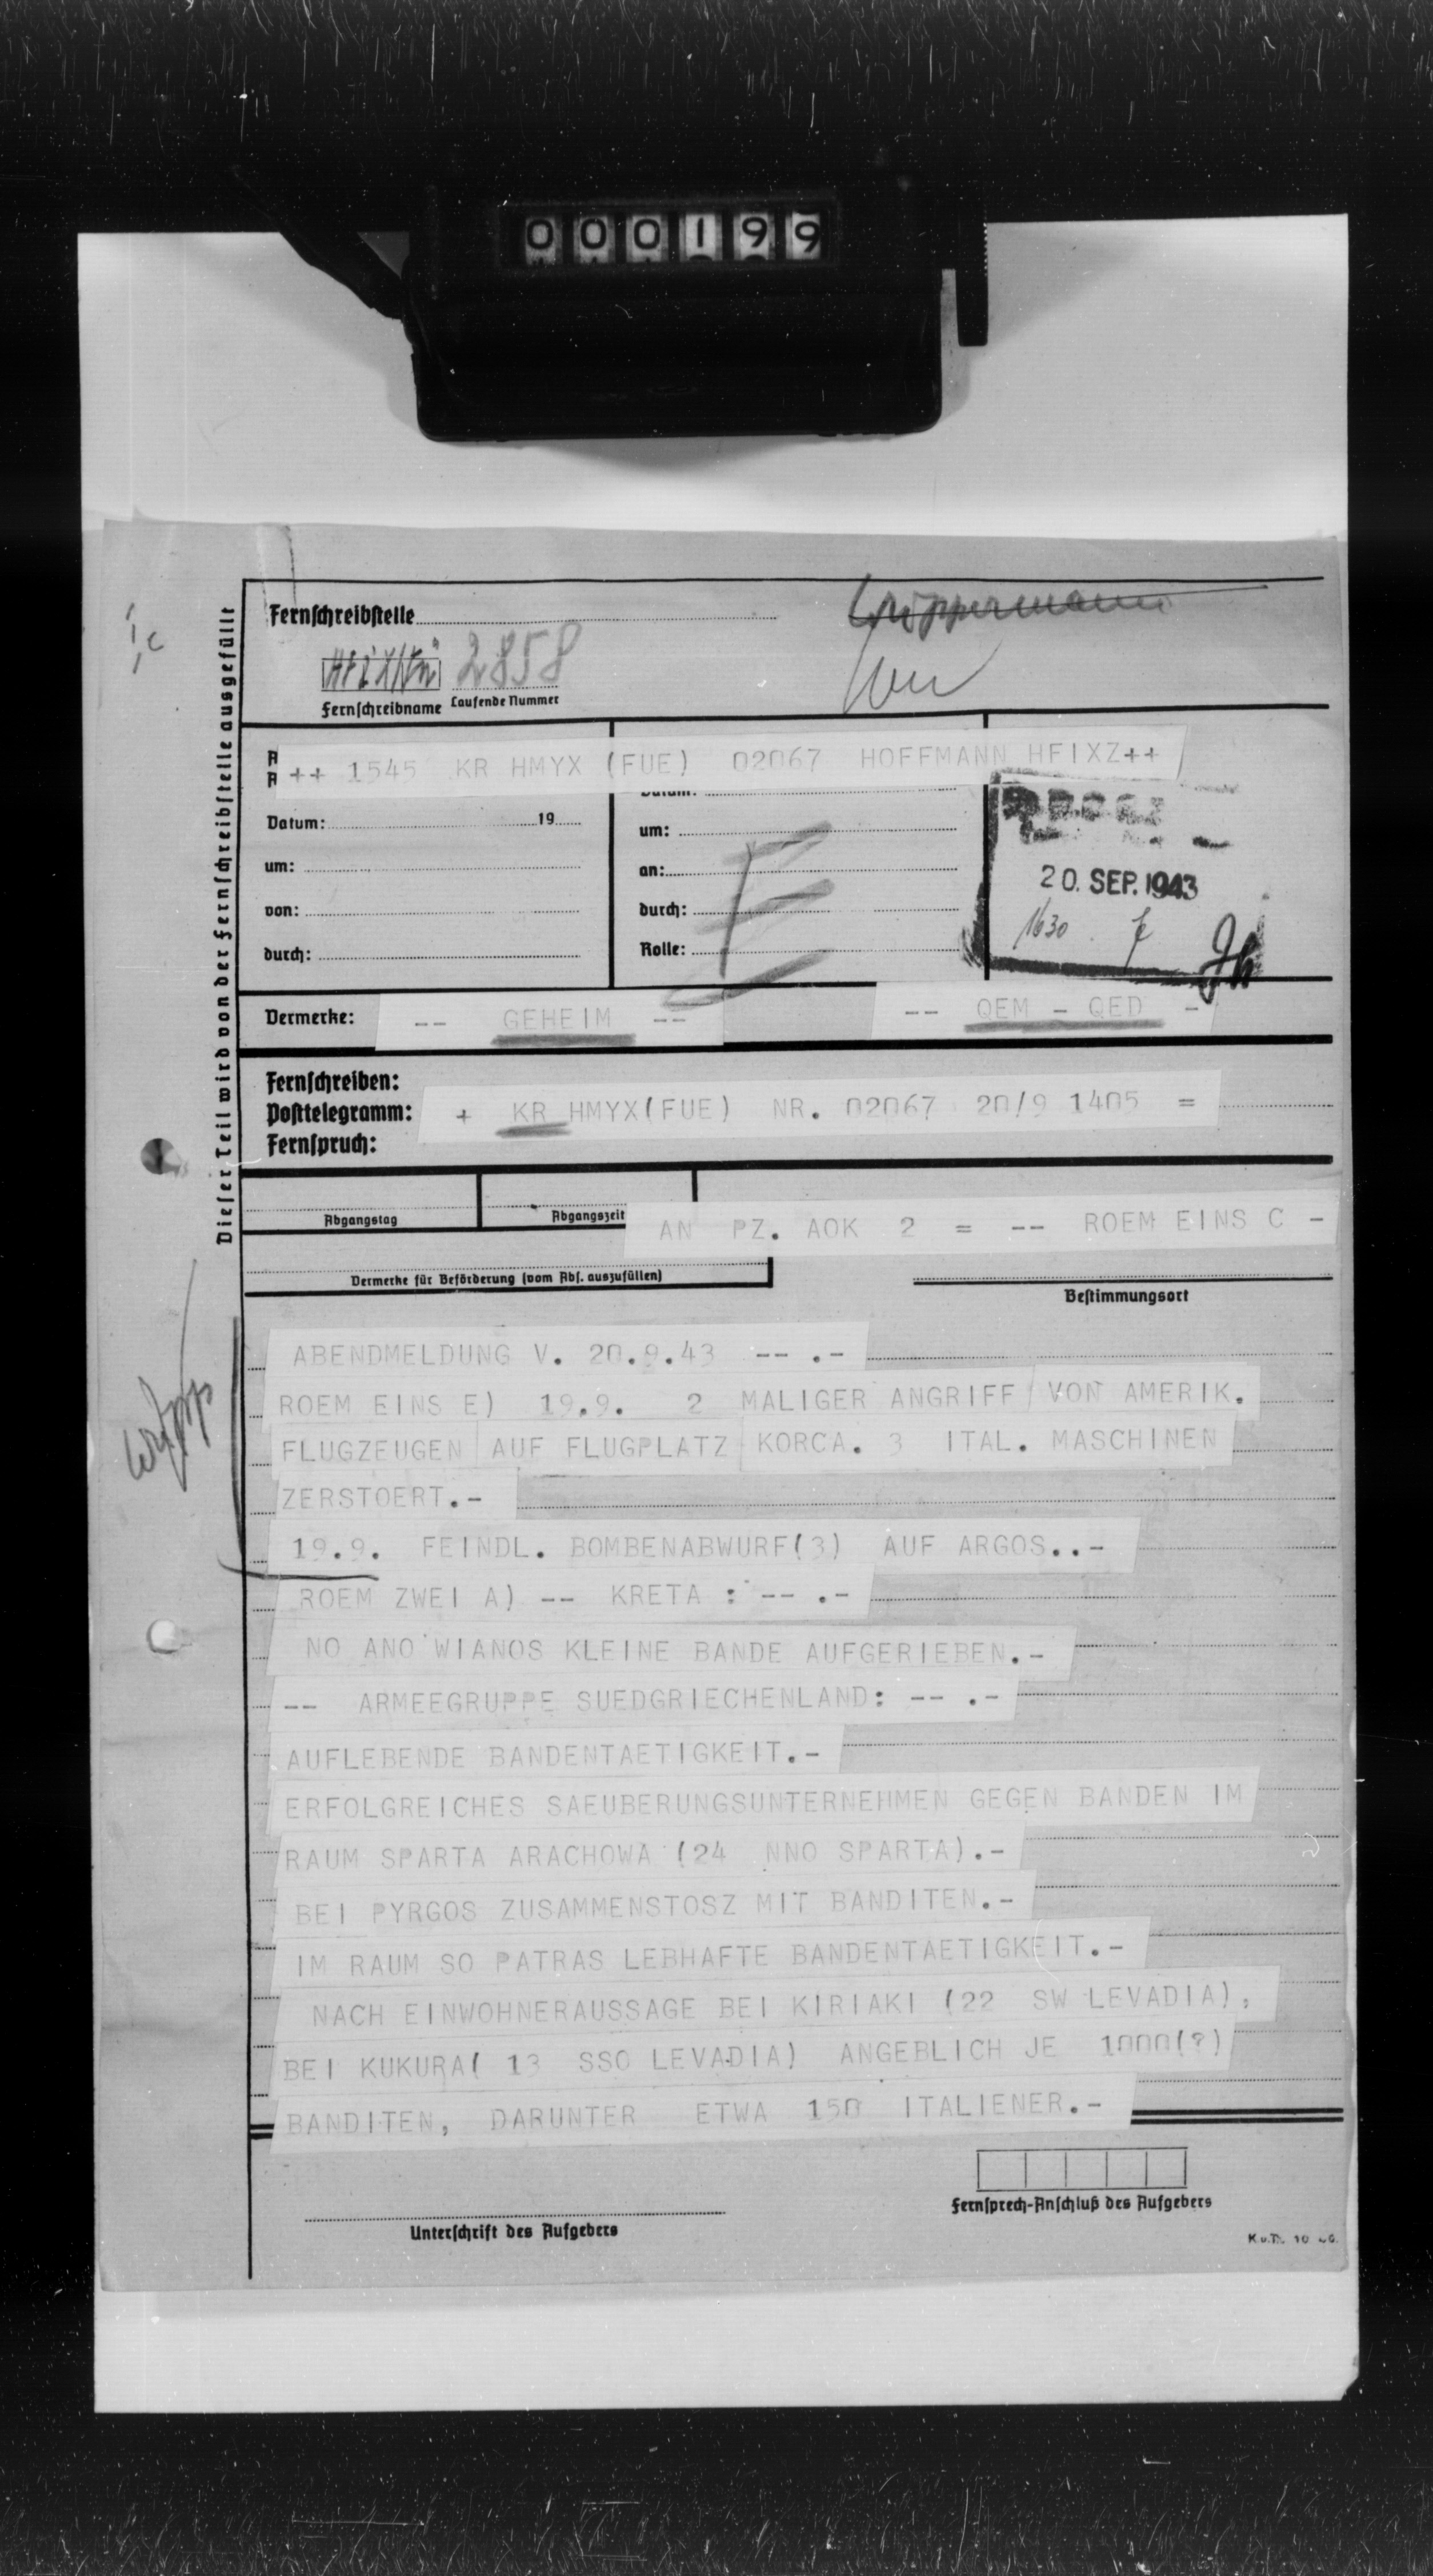 000199
Fernschreibstelle
2858
Fernschreibname Laufende Nummer
Dieser Teil wird von der Fernschreibstelle ausgefüllt
++ 1545 KR HMYX (FUE) 02067 HOFFMANN HFIXZ++
Datum: 19
um:
von:
durch:
Datum:
um:
an:
durch:
Rolle:
20. SEP. 1943
1630
Vermerke: -- GEHEIM -- -- QEM - QED -
Fernschreiben:
Posttelegramm: + KR HMYX(FUE) NR. 02067 20/9 1405 =
Fernspruch:
Abgangstag Abgangszeit
AN PZ. AOK 2 = -- ROEM EINS C -
Vermerke für Beförderung (vom Abs. auszufüllen)
Bestimmungsort
ABENDMELDUNG V. 20.9.43 -- .-
ROEM EINS E) 19.9. 2 MALIGER ANGRIFF VON AMERIK.
FLUGZEUGEN AUF FLUGPLATZ KORCA. 3 ITAL. MASCHINEN
ZERSTOERT.-
19.9. FEINDL. BOMBENABWURF(3) AUF ARGOS..-
ROEM ZWEI A) -- KRETA : -- .-
NO ANO WIANOS KLEINE BANDE AUFGERIEBEN.-
-- ARMEEGRUPPE SUEDGRIECHENLAND: -- .-
AUFLEBENDE BANDENTAETIGKEIT.-
ERFOLGREICHES SAEUBERUNGSUNTERNEHMEN GEGEN BANDEN IM
RAUM SPARTA ARACHOWA (24 NNO SPARTA).-
BEI PYRGOS ZUSAMMENSTOSZ MIT BANDITEN.-
IM RAUM SO PATRAS LEBHAFTE BANDENTAETIGKEIT.-
NACH EINWOHNERAUSSAGE BEI KIRIAKI (22 SW LEVADIA),
BEI KUKURA( 13 SSO LEVADIA) ANGEBLICH JE 1000(?)
BANDITEN, DARUNTER ETWA 150 ITALIENER.-
Unterschrift des Aufgebers
Fernsprech-Anschluß des Aufgebers